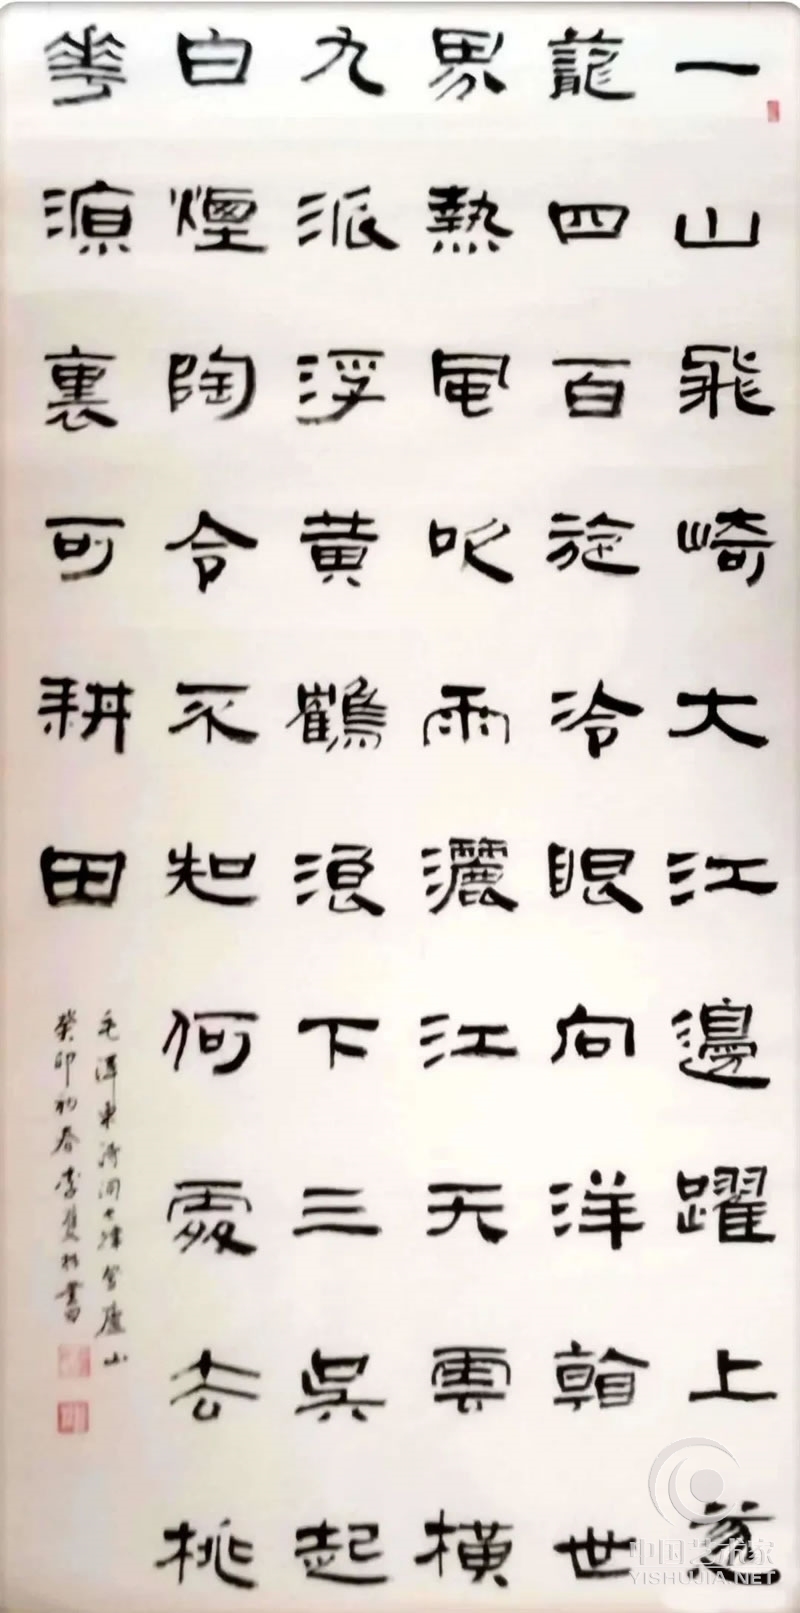 一山飛崎大江邊躍上蔥
龍四百旋冷眼向洋翰世
界熱風吹雨灑江天雲橫
九派浮黄鶴浪下三吳起
白煙陶令不知何處去桃
華源裏可耕田
毛澤東詩詞七律登廬山
癸卯初春李書
中国艺术家
YISHUJIA.NET